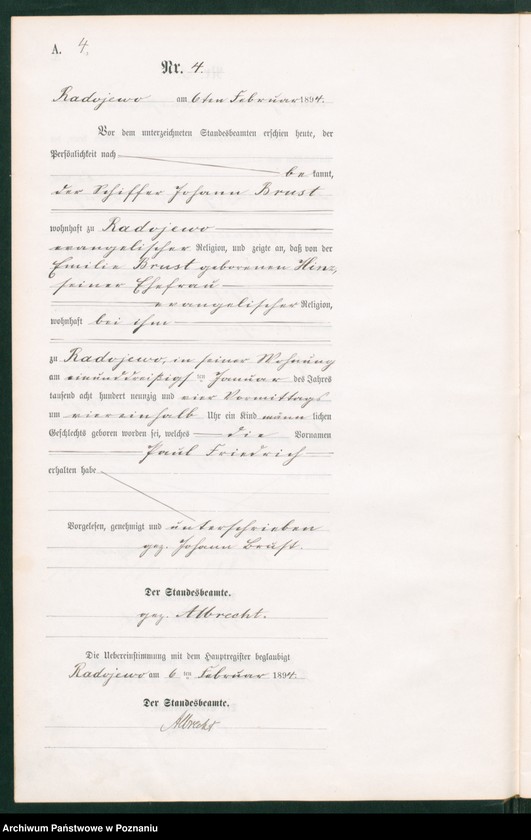 A. 4.
Nr. 4.
Radojewo am 6ten Februar 1894.
Vor dem unterzeichneten Standesbeamten erschien heute, der
Persönlichkeit nach
bekannt,
der Schiffer Johann Brust
wohnhaft zu Radojewo
evangelischer Religion, und zeigte an, daß von der
Emilie Brust geborenen Hinz,
seiner Ehefrau
evangelischer Religion,
wohnhaft bei ihm
zu Radojewo, in seiner Wohnung
am einunddreißigsten Januar des Jahres
tausend acht hundert neunzig und vier Vormittags
um viereinhalb Uhr ein Kind männlichen
Geschlechts geboren worden sei, welches die Vornamen
Paul Friedrich
erhalten habe
Vorgelesen, genehmigt und unterschrieben
gez. Johann Brust.
Der Standesbeamte.
gez. Albrecht.
Die Uebereinstimmung mit dem Hauptregister beglaubigt
Radojewo am 6ten Februar 1894.
Der Standesbeamte.
Albrecht
Archiwum Państwowe w Poznaniu